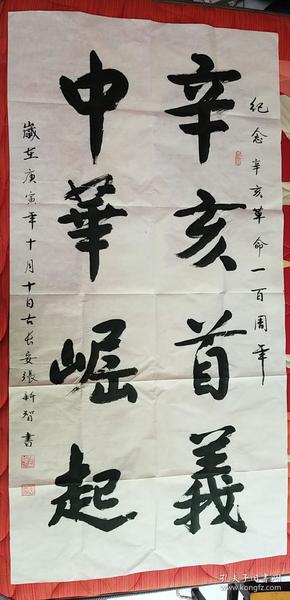 纪念辛亥革命一百周年
辛亥首義
中華崛起
歲在庚寅年十月十日古长安張新智書
孔夫子旧书网